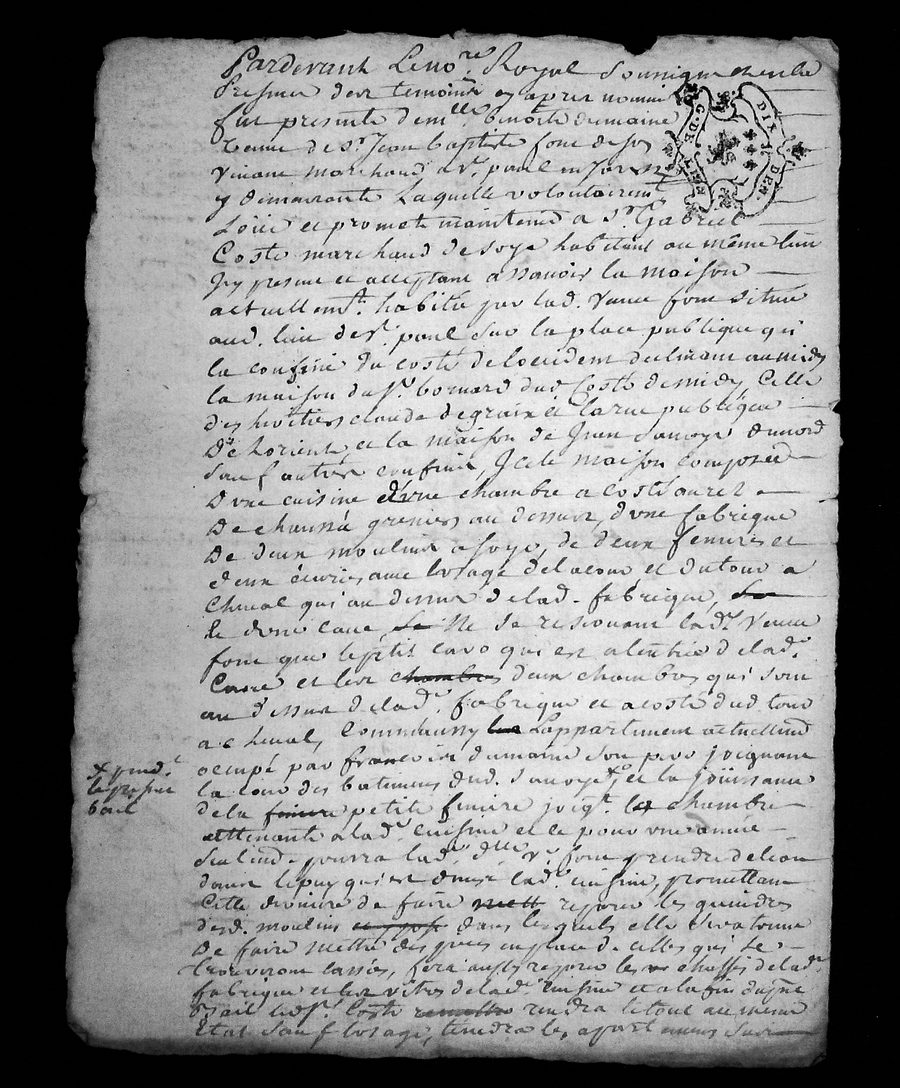 Pardevant Le no.re Royal Soussigné et en la
presence des temoins cy apres nommés
fut presente dem.lle benoite dumaine
veuve de S.r Jean baptiste fond de son
vivant marchand a S.t paul en Jarest
y demeurante Laquelle volontairem.t
Loüe et promet maintenir a S.r Gabriel
Coste marchand de soye habitant au même lieu
icy present et acceptant assavoir la maison
actuellem.t habitée par lad. veuve fond située
aud. lieu de S.t paul sur la place publique qui
la confine du costé de loccident declinant au midy
la maison du S.r bonnard dud. Costé de midy, Celle
des heritiers claude degraix et la rue publique
De Lorient, et la maison de Jean Savoye du nord
sauf autres confins, Icelle maison Composée
D'une cuisine d'une chambre a costé au rez
De chaussée greniers au dessus, d'une fabrique
De deux moulins a soye, de deux fenieres et
deux écuries avec l'usage de la cour et du tour a
Cheval qui au dessus de lad. fabrique,
et d'une cave, Ne se reservant lad. veuve
fond que le petit cavo qui est a l'entrée de lad.
Cave et les chambres deux chambres qui sont
au dessus de lad. fabrique et a costé dud. tour
a cheval, Comme aussy l'appartement actuellement
ocupé par françois dumaine son pere joignant
la cour des batiments dud. Savoye, et la joüissance
de la petite feniere joig.t la chambre
attenante a lad. cuisine et ce pour une année
pourra lad. d.lle v.e fond prendre de l'eau
dans le puy qui est dans lad. cuisine, promettant
Cette derniere de faire mett reparer les guindres
desd. moulins dans lesquels elle sera tenue
De faire mettre des en place de celles qui se
trouveront cassées, fera aussy reparer les chassis de lad.
fabrique et les vitres de lad. cuisine et a la fin du p.nt
Bail led. S.r Coste rendra le tout au même
Etat sauf l'usage, tiendra les apartements
pend.t
le present
bail
G. DE LYON
DIX DEN.